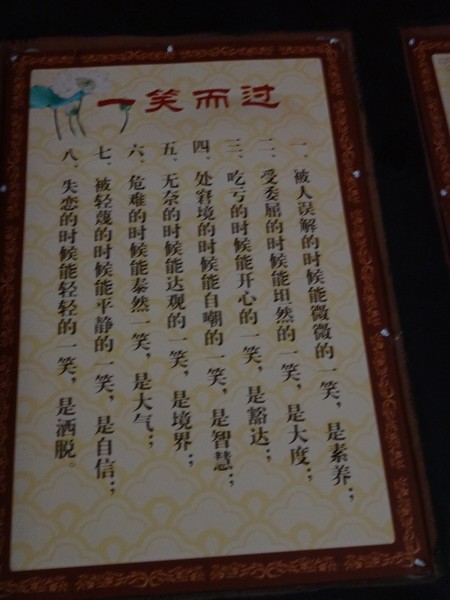 一笑而过
一、被人误解的时候能微微的一笑，是素养；
二、受委屈的时候能坦然的一笑，是大度；
三、吃亏的时候能开心的一笑，是豁达；
四、处窘境的时候能自嘲的一笑，是智慧；
五、无奈的时候能达观的一笑，是境界；
六、危难的时候能泰然一笑，是大气；
七、被轻蔑的时候能平静的一笑，是自信；
八、失恋的时候能轻轻的一笑，是洒脱。